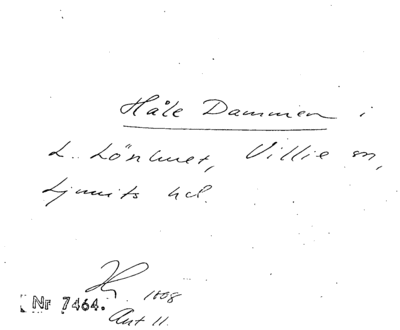 Håle Dammen i
L. Lönhuet, Villie sn,
Ljunits hd.
1808
Nr 7464.
Ant 11.